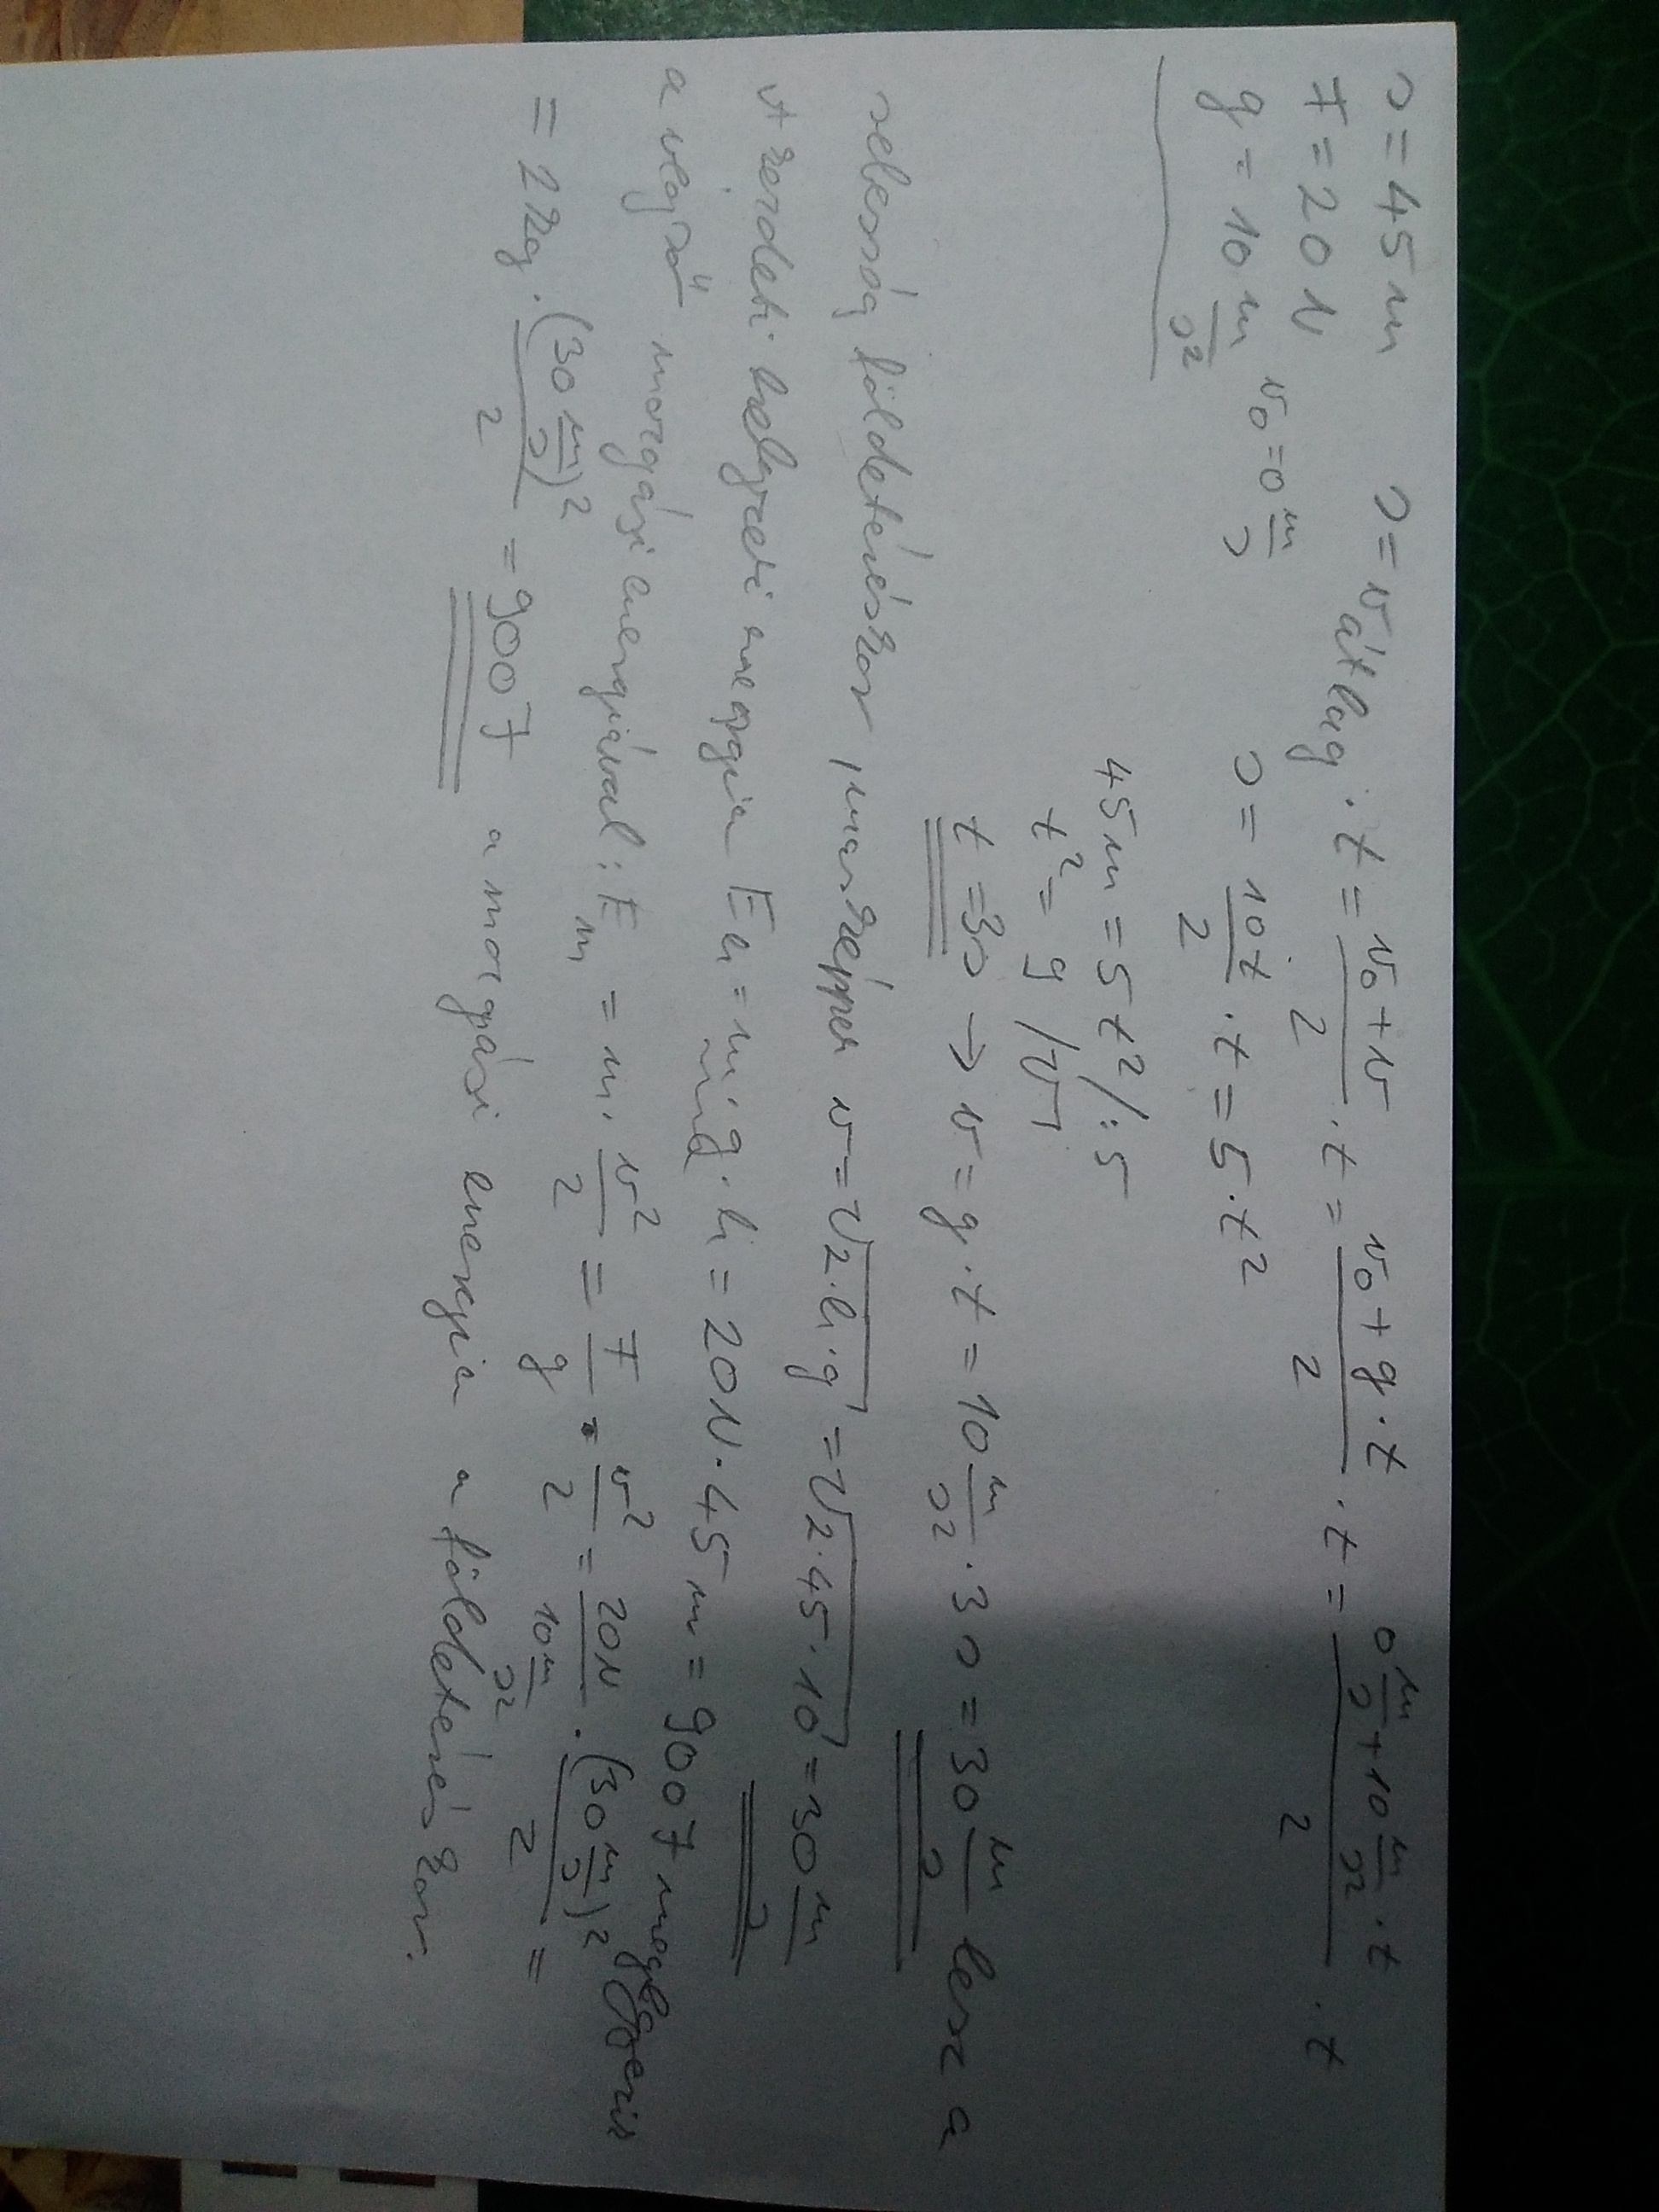 s = 45 m
F = 20 N
g = 10 m/s² v₀ = 0 m/s
s = v átlag · t = (v₀ + v)/2 · t = (v₀ + g · t)/2 · t = (0 m/s + 10 m/s² · t)/2 · t
s = 10 · t/2 · t = 5 · t²
45 m = 5 t² / : 5
t² = 9 / √
t = 3 s → v = g · t = 10 m/s² · 3 s = 30 m/s lesz a
sebesség földetéréskor, másképpen v = √2 · h · g = √2 · 45 · 10 = 30 m/s
A kezdeti helyzeti energia Eh = m · g · h = 20 N · 45 m = 900 J megegyezik
a végső mozgási energiával: Em = m · v²/2 = F/g · v²/2 = 20 N/10 m/s² · (30 m/s)²/2 =
= 2 kg · (30 m/s)²/2 = 900 J a mozgási energia a földetéréskor.